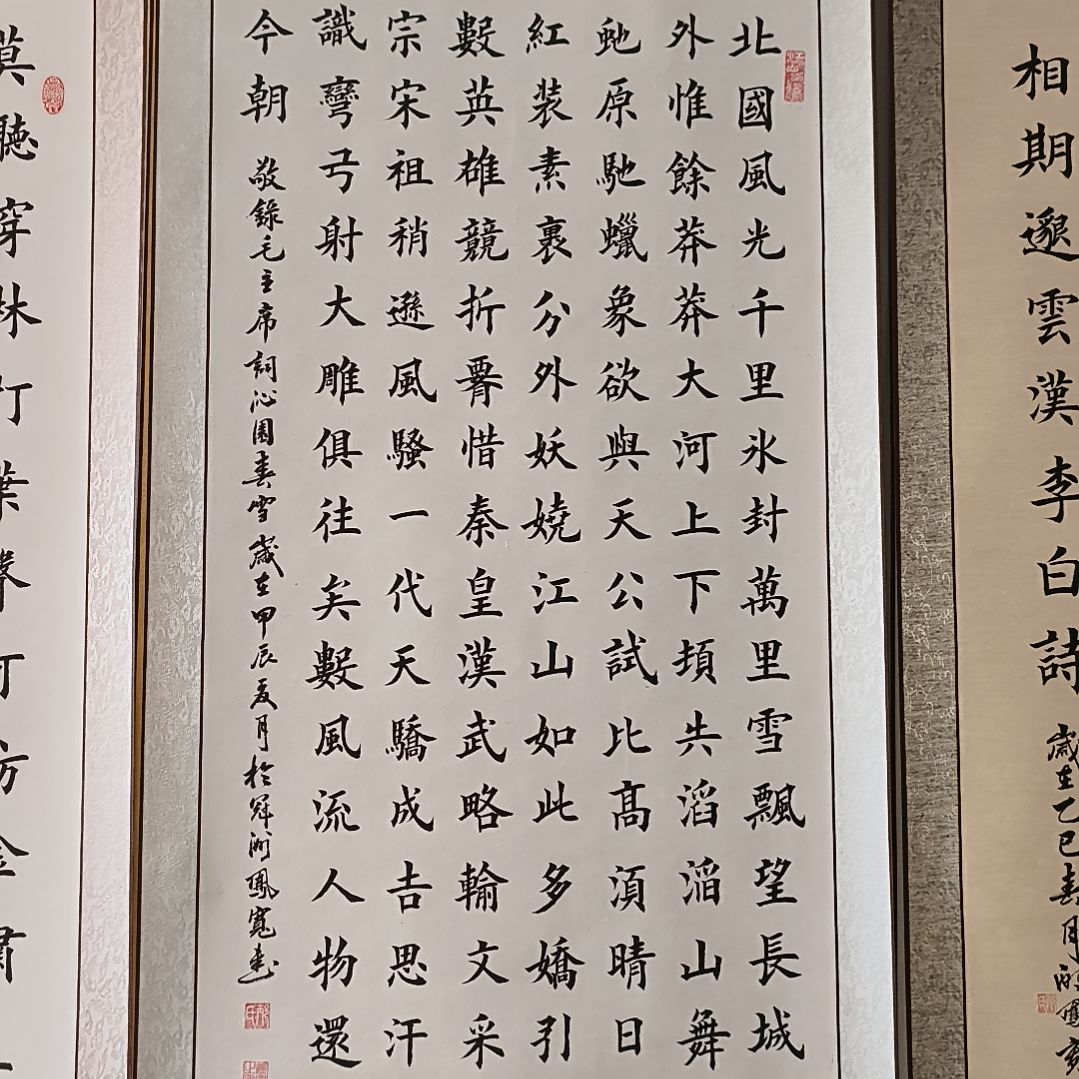 相期邈雲漢李白詩
歲在乙巳春月
北國風光千里氷封萬里雪飄望長城
外惟餘莽莽大河上下頓失滔滔山舞
虵原馳蠟象欲與天公試比高湏晴日
紅装素裹分外妖嬈江山如此多嬌引
數英雄競折腰惜秦皇漢武略輸文采
宗宋祖稍遜風騷一代天驕成吉思汗
識彎弓射大雕俱往矣數風流人物還
今朝 敬錄毛主席詞沁園春雪歲在甲辰夏月於鳳寬書
莫聽穿林打葉聲何妨吟嘯